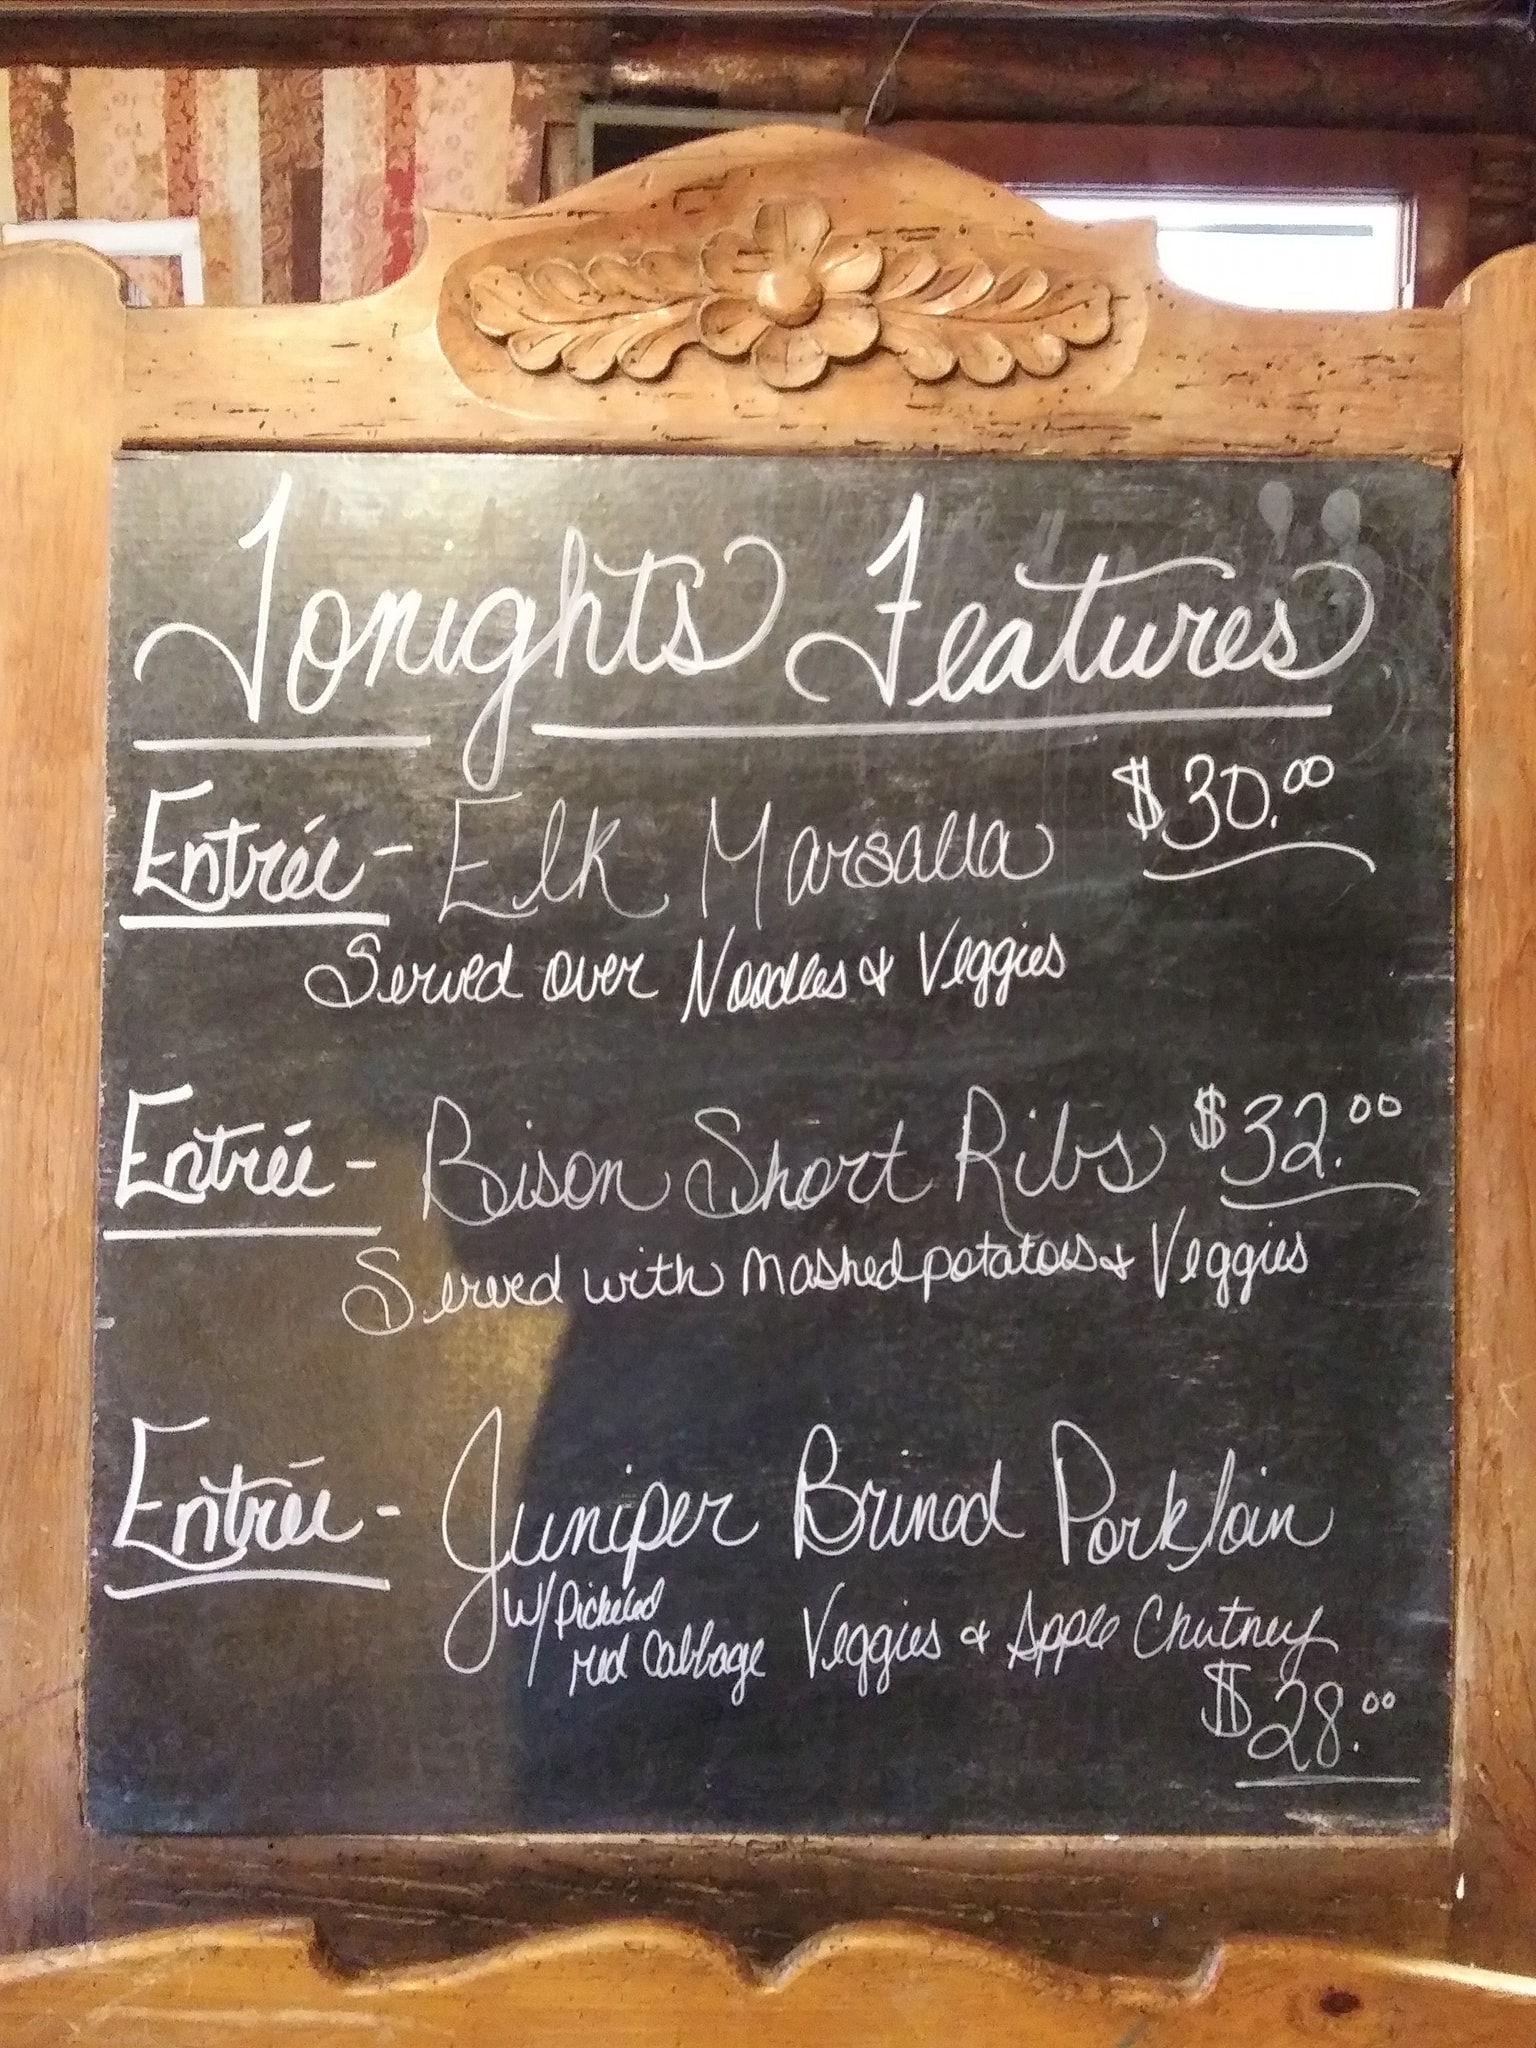 Tonights Features
Entrée - Elk Marsalla $30.00
Served over Noodles & Veggies
Entrée - Bison Short Ribs $32.00
Served with mashed potatoes & Veggies
Entrée - Juniper Brined Pork loin
w/ Pickeled
red Cabbage Veggies & Apple Chutney
$28.00